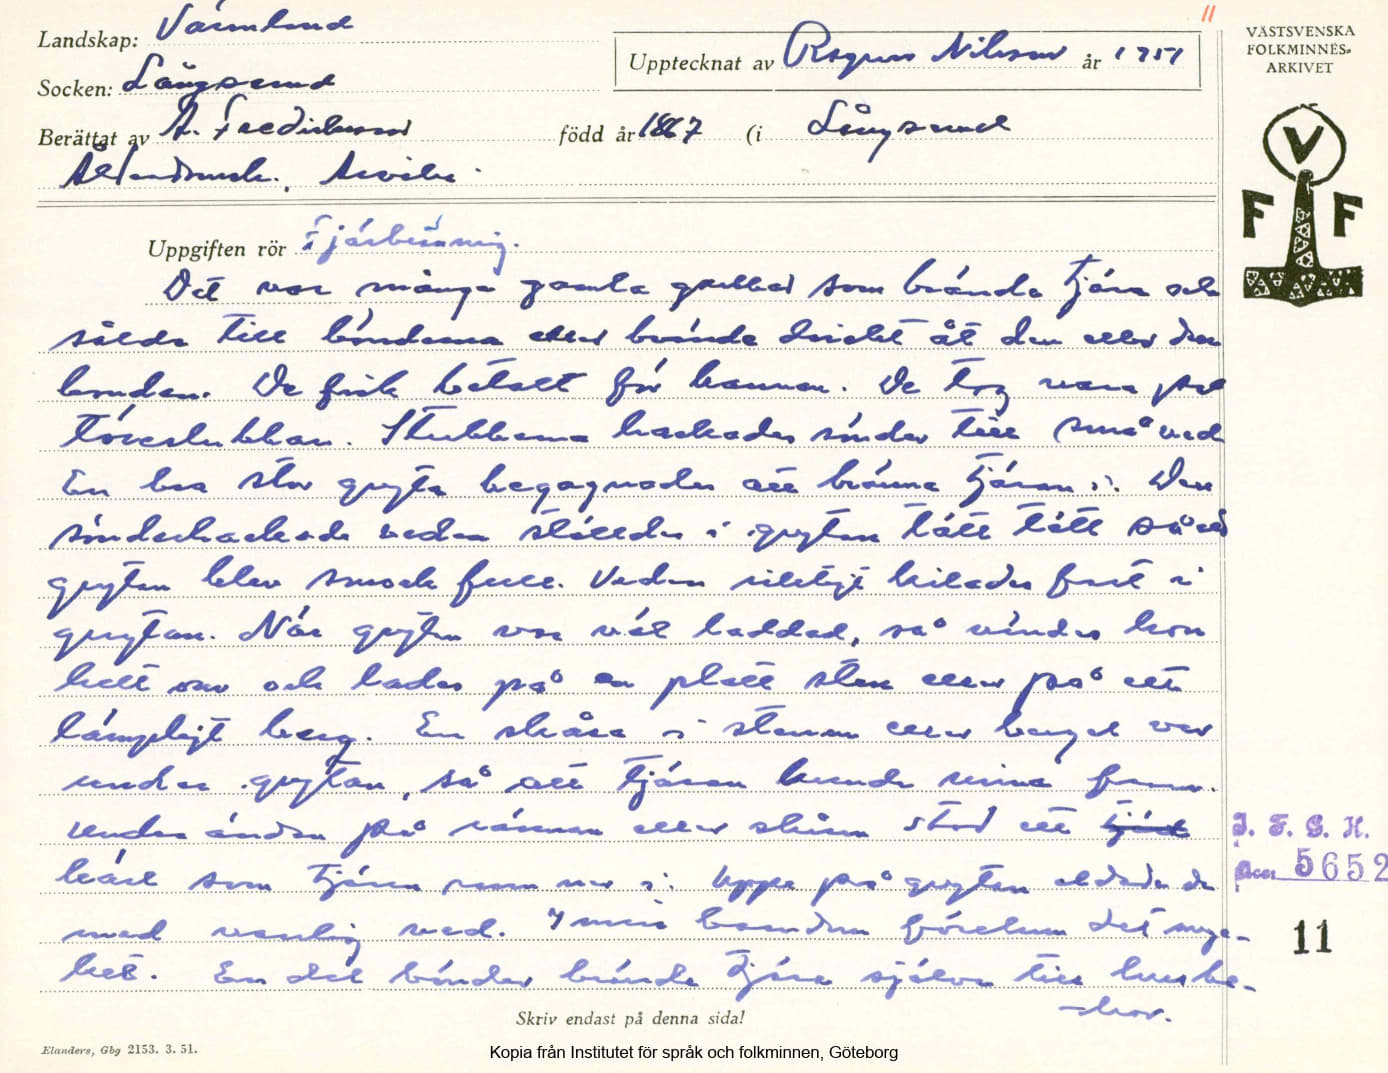 11
Landskap: Värmland
Upptecknat av Ragnar Nilsson år 1951
VÄSTSVENSKA
FOLKMINNES-
ARKIVET
Socken: Långserud
Berättat av A. Fredriksson född år 1867 (i Långserud
Ålderdomsh., Arvika.
V
F F
Uppgiften rör Tjärbränning.
Det var många gamla gubbar som brände tjära och
sålde till bönderna eller brände direkt åt den eller den
bonden. De fick betalt för kannan. De tog vara på
törestubbar. Stubbarna hackades sönder till små ved
En bra stor gryta begagnades att bränna tjäran i. Den
sönderhackade veden ställdes i grytan tätt tätt så att
grytan blev smock full. Veden riktigt kilades fast i
grytan. När grytan var väl laddad, så vändes hon
helt om och lades på en platt sten eller på ett
lämpligt berg. En skåra i stenen eller berget var
under grytan, så att tjäran kunde rinna fram.
Under änden på rännan eller skåran stod ett tjärk
kärl som tjäran rann ner i. Uppe på grytan eldade de
med vanlig ved. I min barndom förekom det myc-
ket. En del bönder brände tjära själva till husbe-
hov.
I. F. G. H.
Acc. 5652
11
Skriv endast på denna sida!
Elanders, Gbg 2153. 3. 51.
Kopia från Institutet för språk och folkminnen, Göteborg